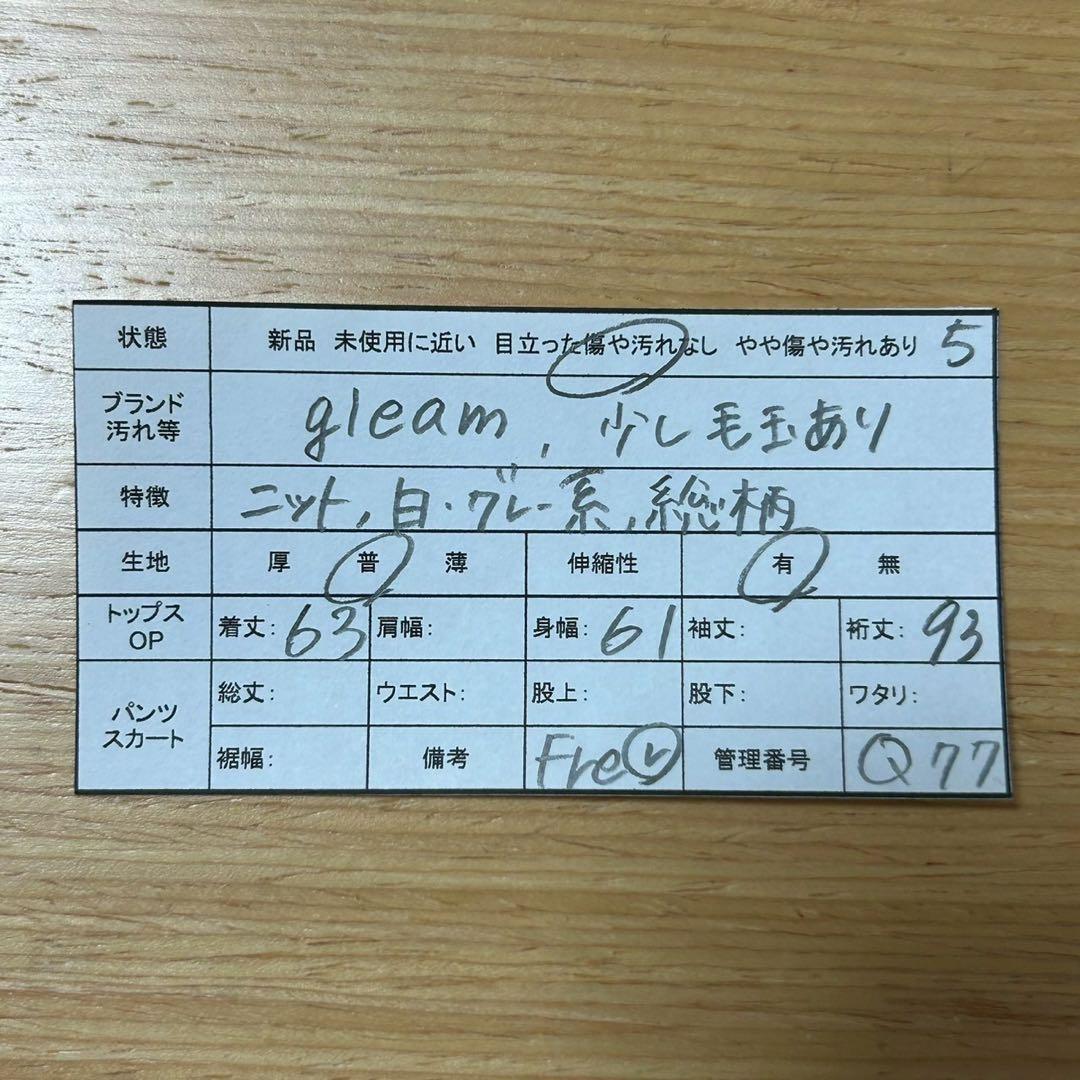 状態 新品 未使用に近い 目立った傷や汚れなし やや傷や汚れあり 5
ブランド 汚れ等 gleam, 少し毛玉あり
特徴 ニット, 白・グレー系, 総柄
生地 厚 普 薄 伸縮性 有 無
トップス OP 着丈: 63 肩幅: 身幅: 61 袖丈: 裄丈: 93
パンツ スカート 総丈: ウエスト: 股上: 股下: ワタリ:
裾幅: 備考 Fre 管理番号 Q77